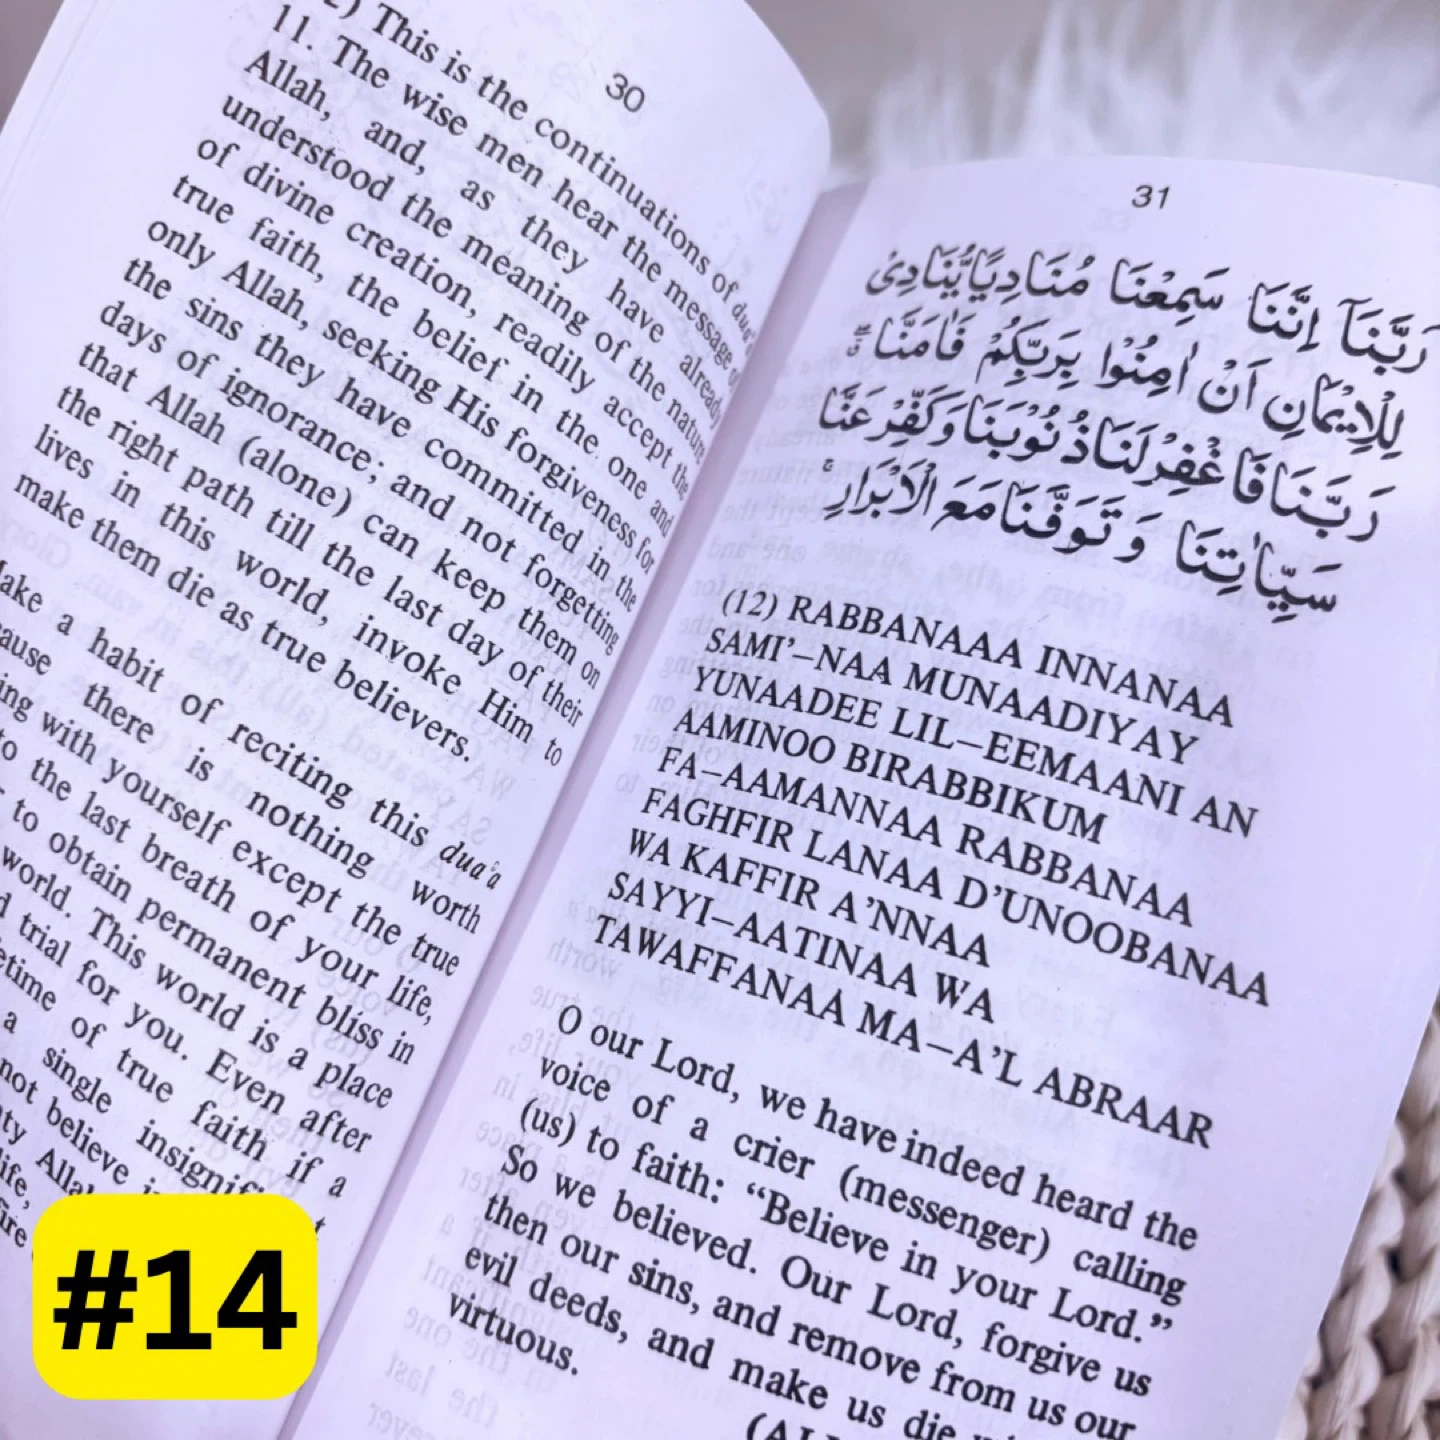 30
) This is the continuations of dua'a
11. The wise men hear the message of
Allah, and, as they have already
understood the meaning of the nature
of divine creation, readily accept the
true faith, the belief in the one and
only Allah, seeking His forgiveness for
the sins they have committed in the
days of ignorance; and not forgetting
that Allah (alone) can keep them on
the right path till the last day of their
lives in this world, invoke Him to
make them die as true believers.
a habit of reciting this dua'a
there is nothing worth
with yourself except the true
to the last breath of your life,
to obtain permanent bliss in
world. This world is a place
trial for you. Even after
of true faith if a
a single
not believe
31
رَبَّنَآ اِنَّنَا سَمِعْنَا مُنَادِيًا يُّنَادِىْ
لِلْاِيْمَانِ اَنْ اٰمِنُوْا بِرَبِّكُمْ فَاٰمَنَّا ۖ
رَبَّنَا فَاغْفِرْ لَنَا ذُنُوْبَنَا وَكَفِّرْ عَنَّا
سَيِّاٰتِنَا وَ تَوَفَّنَا مَعَ الْاَبْرَارِ
(12) RABBANAAA INNANAA
SAMI'–NAA MUNAADIYAY
YUNAADEE LIL–EEMAANI AN
AAMINOO BIRABBIKUM
FA–AAMANNAA RABBANAA
FAGHFIR LANAA D'UNOOBANAA
WA KAFFIR A'NNAA
SAYYI–AATINAA WA
TAWAFFANAA MA–A'L ABRAAR
O our Lord, we have indeed heard the
voice of a crier (messenger) calling
(us) to faith: “Believe in your Lord.”
So we believed. Our Lord, forgive us
then our sins, and remove from us our
evil deeds, and make us die
virtuous.
#14